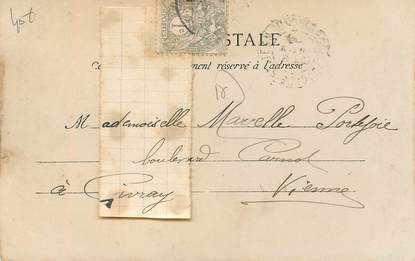 40t
STALE
Ce ement réservé à l'adresse
Mademoiselle Marcelle Portejoie
boulevard Carnot
à Civray Vienne